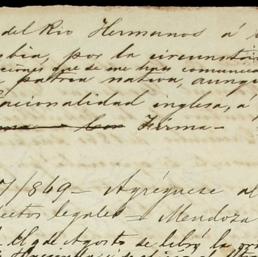 del Rio Hermanos á
bia, por la circunstan
ciones que se me han comunica
, patria nativa, aunqu
acionalidad inglesa, a
Firma —
7/1869 — Agréguese al
ectos legales — Mendoza
El 9 de Agosto se libró la